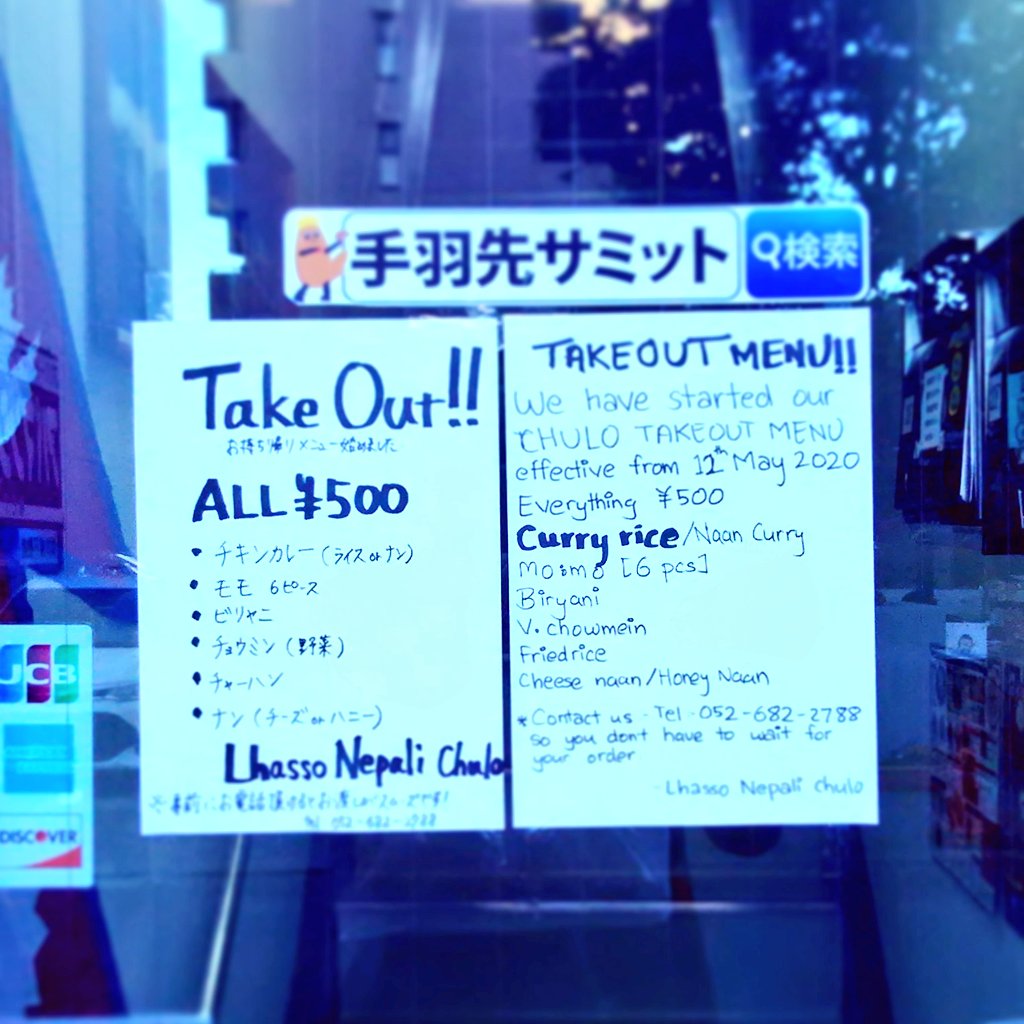 手羽先サミット 検索
Take Out!!
お持ち帰りメニュー始めました
ALL ¥500
• チキンカレー (ライス or ナン)
• モモ 6ピース
• ビリヤニ
• チョウミン (野菜)
• チャーハン
• ナン (チーズ or ハニー)
Lhasso Nepali Chulo
※事前にお電話頂けるとお渡しがスムーズです!
TAKEOUT MENU!!
We have started our
CHULO TAKEOUT MENU
effective from 12th May 2020
Everything ¥500
Curry rice/Naan Curry
Mo:mo [6 pcs]
Biryani
V. chowmein
Friedrice
Cheese naan/Honey Naan
* Contact us - Tel - 052-682-2788
so you dont have to wait for
your order
- Lhasso Nepali Chulo
JCB
DISCOVER